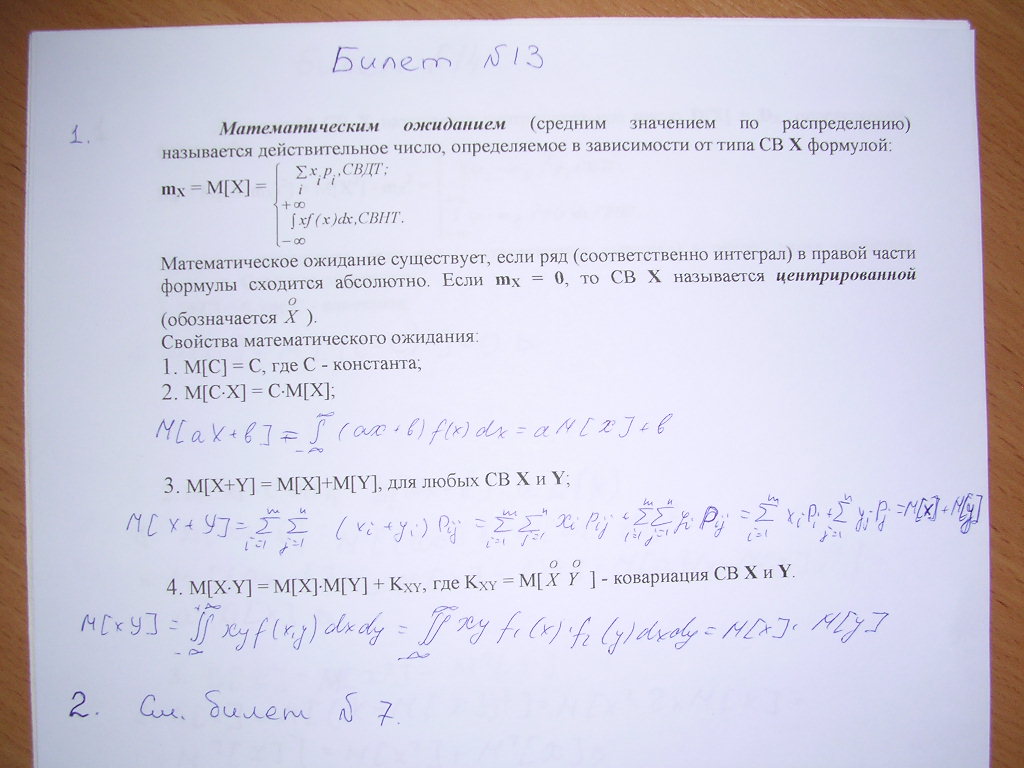 Билет №13
1.
Математическим ожиданием (средним значением по распределению)
называется действительное число, определяемое в зависимости от типа СВ X формулой:
mX = M[X] = { ∑i xi pi, СВДТ; ∫−∞+∞ xf(x)dx, СВНТ.
Математическое ожидание существует, если ряд (соответственно интеграл) в правой части
формулы сходится абсолютно. Если mX = 0, то СВ X называется центрированной
(обозначается X̊ ).
Свойства математического ожидания:
1. M[C] = C, где C - константа;
2. M[C·X] = C·M[X];
M[aX+b] = ∫−∞∞ (ax+b) f(x) dx = a M[x]+b
3. M[X+Y] = M[X]+M[Y], для любых СВ X и Y;
M[X+Y] = ∑i=1m ∑j=1n (xi+yi) Pij = ∑i=1m ∑j=1n xi Pij + ∑i=1m ∑j=1n yi Pij = ∑i=1m xi Pi + ∑j=1n yj Pj = M[x]+M[y]
4. M[X·Y] = M[X]·M[Y] + KXY, где KXY = M[ X̊ Y̊ ] - ковариация СВ X и Y.
M[xY] = ∬−∞+∞ xyf(x,y) dxdy = ∬−∞∞ xy f1(x)·f2(y)dxdy = M[x]· M[y]
2. См. билет № 7.